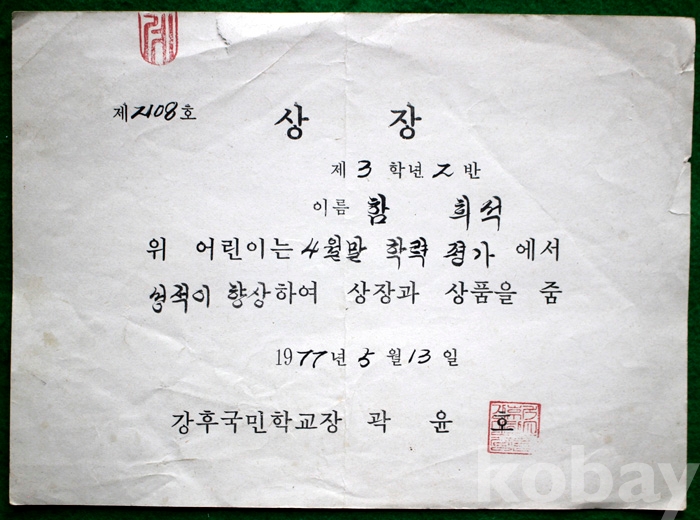 제2108호
상 장
제 3 학년 2 반
이름 함 희석
위 어린이는 4월말 학력 평가 에서
성적이 향상하여 상장과 상품을 줌
1977년 5월 13일
강후국민학교장 곽 윤 호
kobay